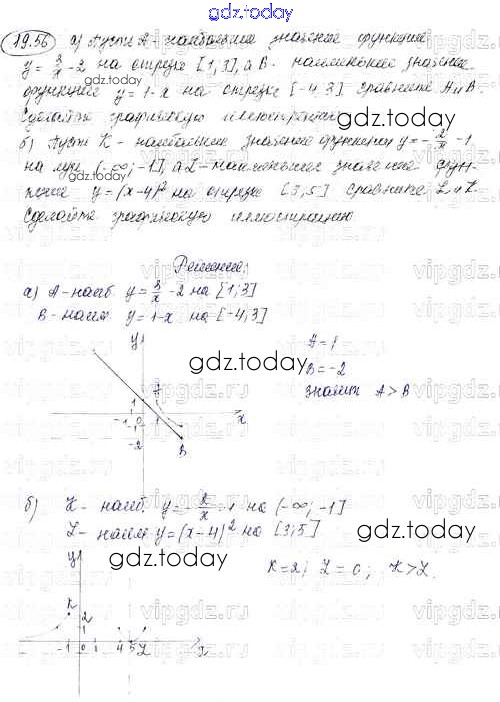 gdz.today
19.56 а) Пусть A - наибольшее значение функции
y = 3/x - 2 на отрезке [1,3], а B - наименьшее значение
функции y = 1-x на отрезке [-4,3] сравните A и B
Сделайте графическую иллюстрацию
б) Пусть K - наибольшее значение функции y = -2/x - 1
на луче (-∞; -1], а L - наименьшее значение функ-
ции y = (x-4)² на отрезке [3,5] сравните L и K
Сделайте графическую иллюстрацию
gdz.today
Решение:
а) A - наиб. y = 3/x - 2 на [1;3]
B - наим y = 1-x на [-4;3]
A = 1
B = -2
значит A > B
y
gdz.today
A
1
-1 0 1 x
-1
-2
B
б) K - наиб. y = -2/x - 1 на (-∞; -1]
L - наим y = (x-4)² на [3;5]
gdz.today
K = 2; L = 0; K > L.
y
K
2
1
-1 0 1 4 5 L x
gdz.today